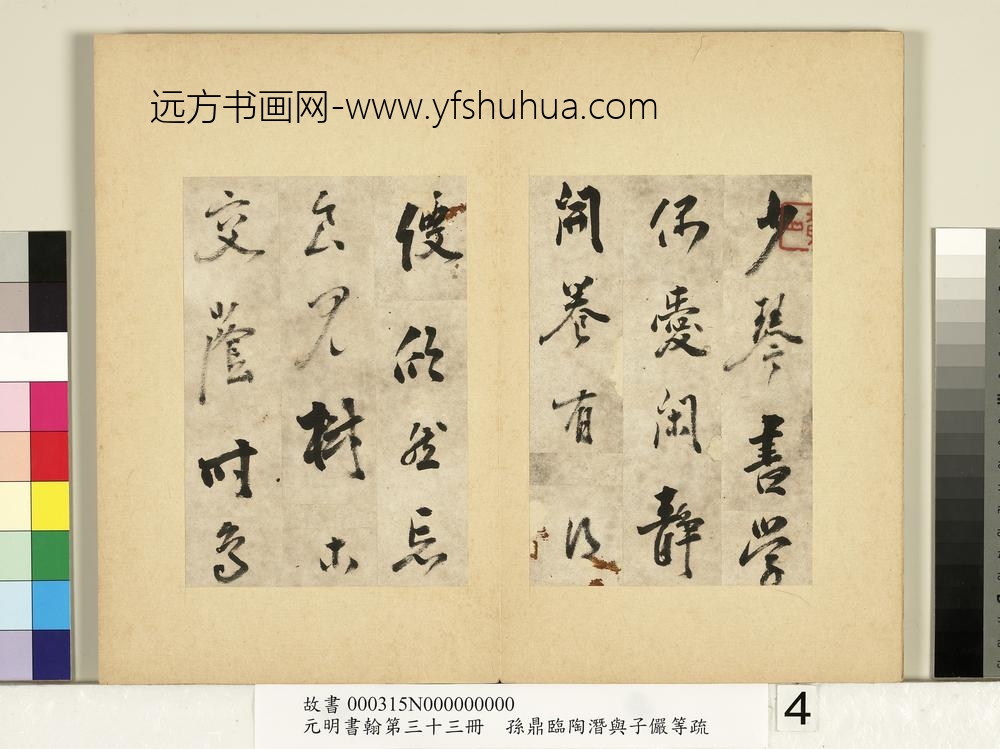 远方书画网-www.yfshuhua.com
少琴書學
偶愛闲靜
開卷有得
便欣然忘
食見樹木
交蔭時鳥
故書 000315N000000000
元明書翰第三十三冊 孫鼎臨陶潛與子儼等疏
4